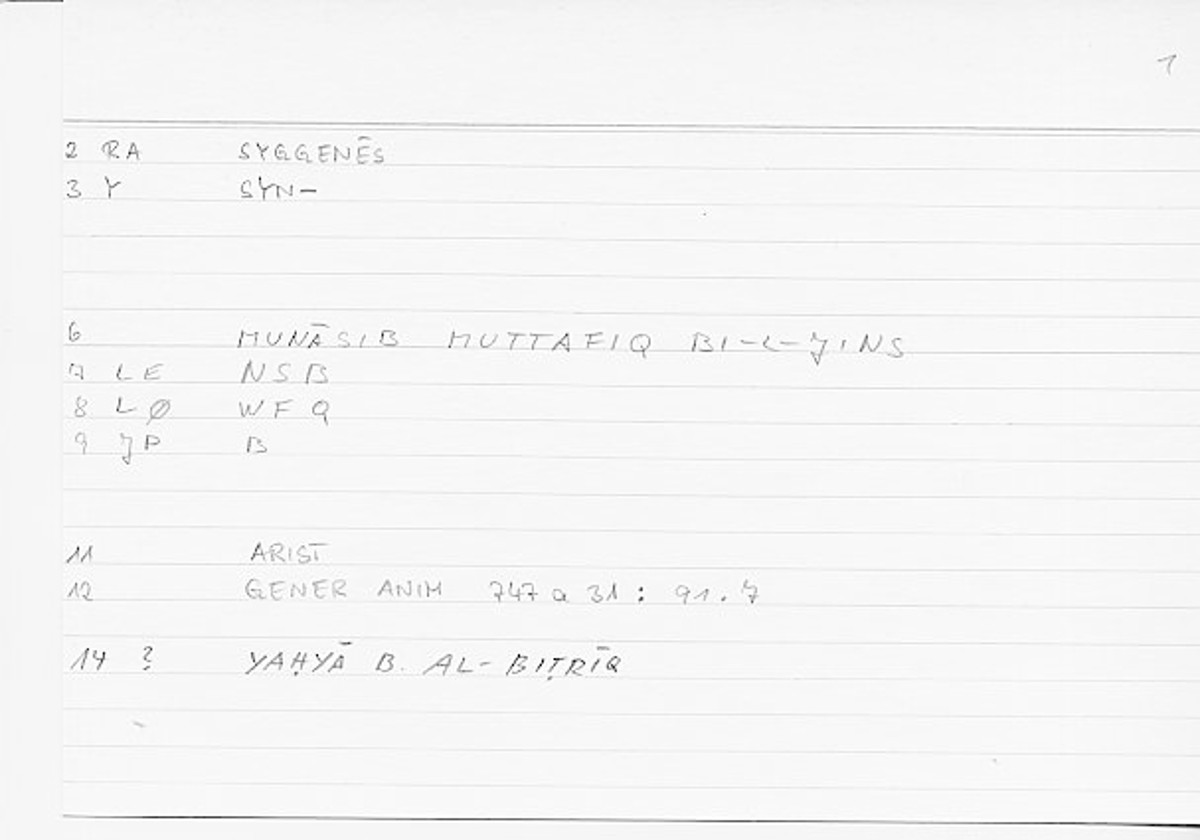 1
2 RA SYGGENĒS
3 Y SYN-
6 MUNĀSIB MUTTAFIQ BI-L-JINS
7 LE NSB
8 LØ WFQ
9 JP B
11 ARIST
12 GENER ANIM 747 a 31 : 91.7
14 ? YAḤYĀ B. AL-BIṬRĪQ